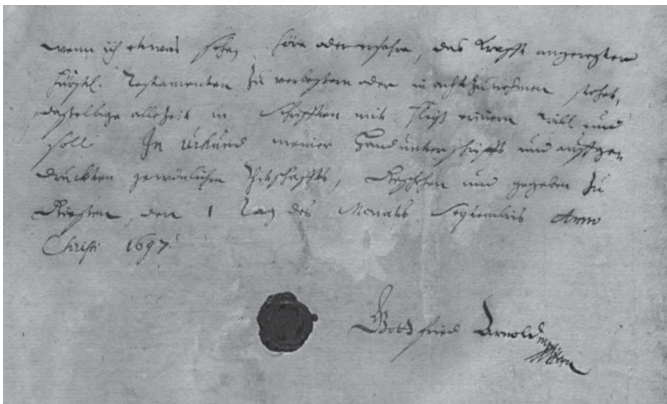 wenn ich etwas sehe, höre oder erfahre, das krafft angeregten
Fürstl. Testamenten zu verbessern oder in acht zu nehmen stehet,
dasselbige allezeit in Schrifften mit fleiß erinnern will und
soll. In Urkund meiner Handunterschrifft und auffge-
druckten gewönlichen Pitschaffts, Geschehen und gegeben zu
Giessen, den 1 Tag des Monats Septembris Anno
Christi 1697.
Gottfried Arnold